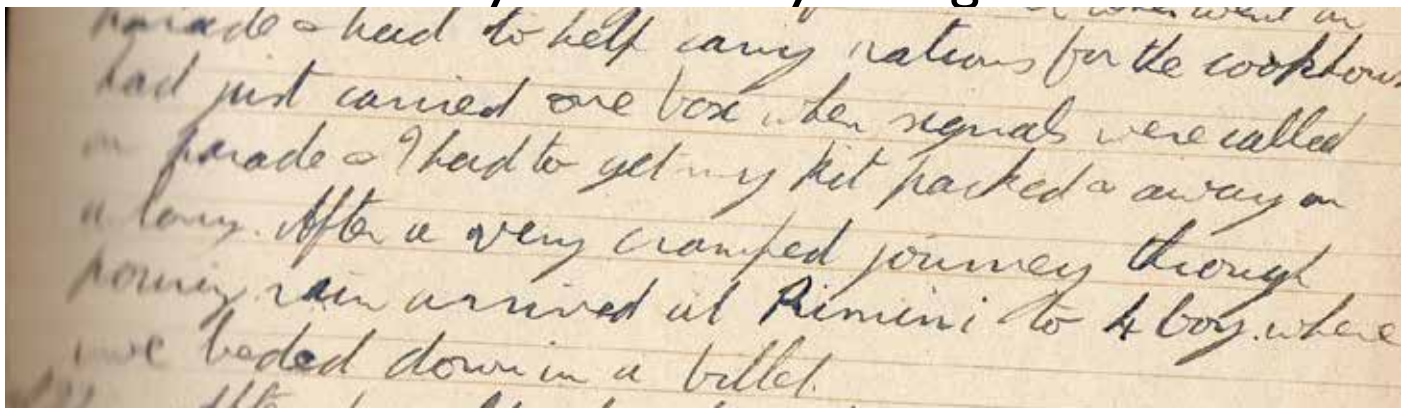 when went on
parade & had to help carry rations for the cookhouse
had just carried one box when signals were called
on parade & I had to get my kit packed & away on
a lorry. After a very cramped journey through
pouring rain arrived at Rimini to 4 boy. where
we beded down in a billet.
After